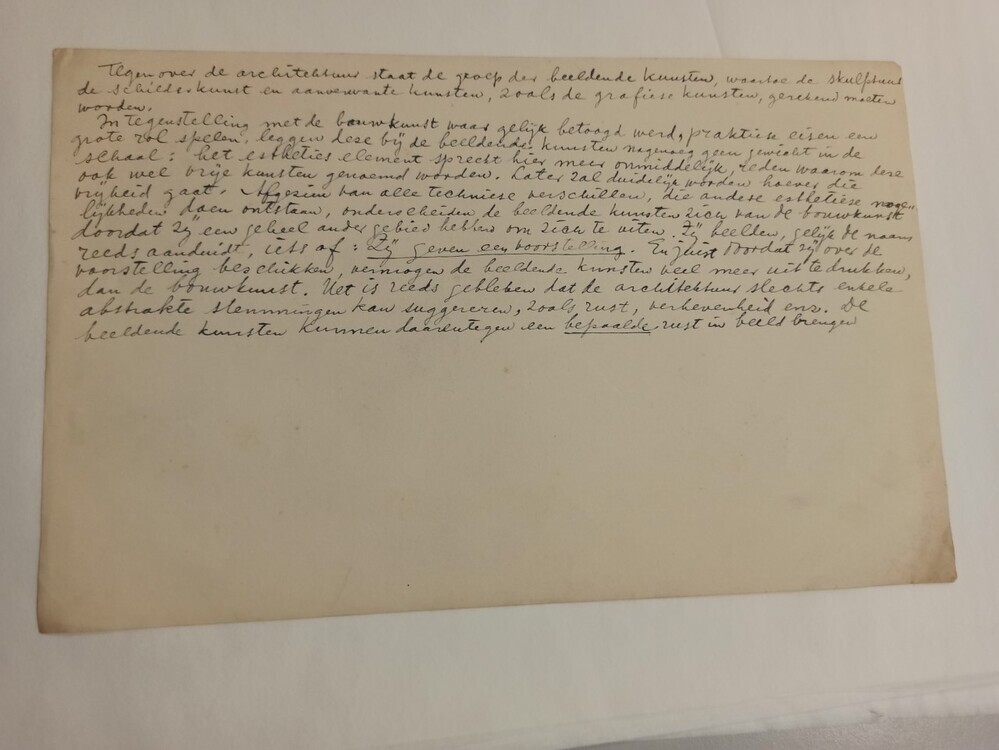 Tegenover de architektuur staat de groep der beeldende kunsten, waartoe de skulptuur
de schilderkunst en aanverwante kunsten, zoals de grafiese kunsten, gerekend moeten
worden.
In tegenstelling met de bouwkunst waar gelijk betoogd werd, praktiese eisen een
grote rol spelen, leggen deze bij de beeldende kunsten nagenoeg geen gewicht in de
schaal: het estheties element spreekt hier meer onmiddelijk, reden waarom deze
ook wel vrije kunsten genoemd worden. Later zal duidelijk worden hoever die
vrijheid gaat. Afgezien van alle techniese verschillen, die andere esthetiese moge-
lijkheden doen ontstaan, onderscheiden de beeldende kunsten zich van de bouwkunst
doordat zij een geheel ander gebied hebben om zich te uiten. Zij beelden, gelijk de naam
reeds aanduidt, iets af: Zij geven een voorstelling. En juist doordat zij over de
voorstelling beschikken, vermogen de beeldende kunsten veel meer uit te drukken,
dan de bouwkunst. Het is reeds gebleken dat de architektuur slechts enkele
abstrakte stemmingen kan suggereren, zoals rust, verhevenheid enz. De
beeldende kunsten kunnen daarentegen een bepaalde rust in beeld brengen